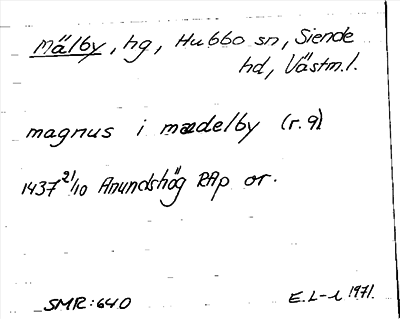 Mälby, hg, Hubbo sn, Siende
hd, Västm.l.
magnus i mædelby (r. 9)
1437 21/10 Anundshög RAp or.
SMR:640
E.L-l 1971.